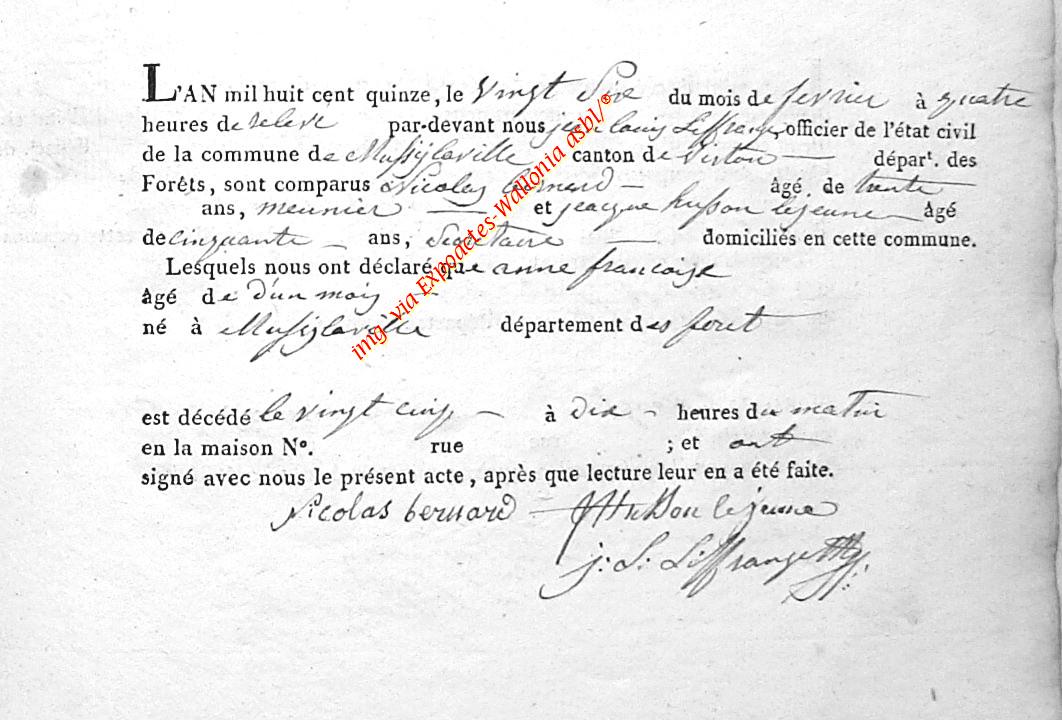 L'AN mil huit cent quinze, le vingt Six du mois de fevrier à quatre
heures de releve par-devant nous jean louis Liffrange, officier de l'état civil
de la commune de Mussylaville canton de Virton dépar^t. des
Forêts, sont comparus Nicolas bernard âgé de trente
ans, meunier et jeacque husson lejeune âgé
de cinquante ans, Secretaire domiciliés en cette commune.
Lesquels nous ont déclaré que anne francoise
âgé de d'un mois
né à Mussylaville département des foret
est décédé le vingt cinq à dix heures du matin
en la maison N°. rue ; et ont
signé avec nous le présent acte, après que lecture leur en a été faite.
Nicolas bernard husson lejeune
j: L: Liffrange
img via Expoactes-Wallonia asbl/®